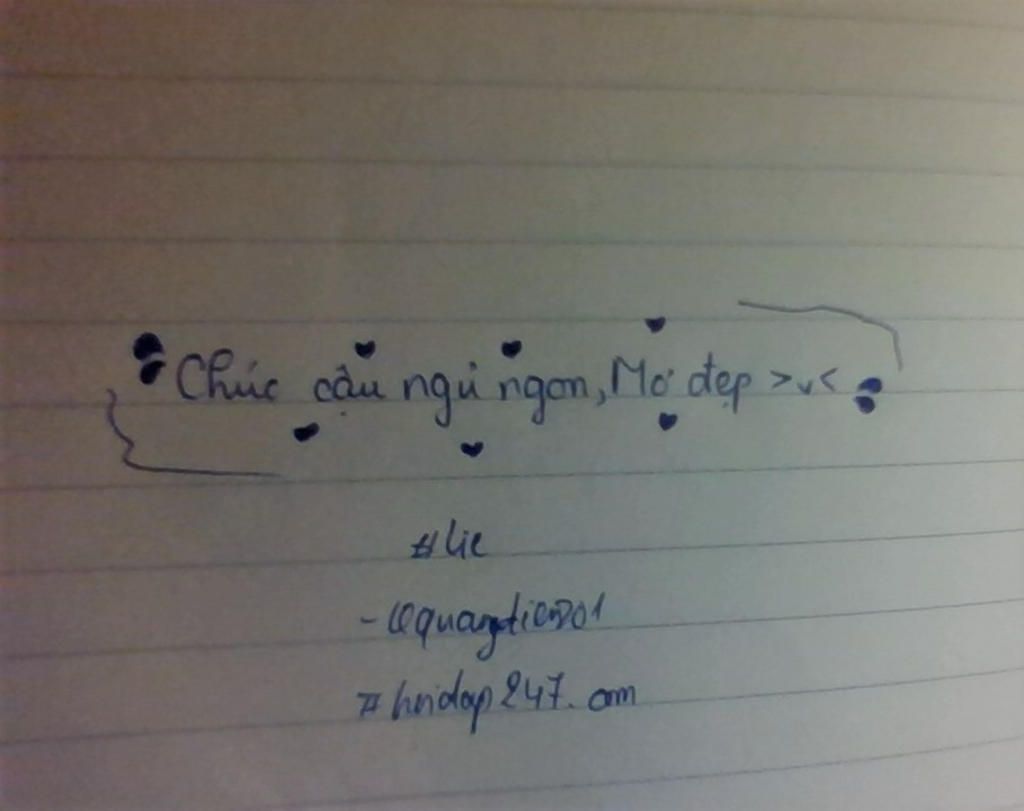 Chúc cậu ngủ ngon, Mơ đẹp >v<
#lie
- lequangtien201
#hoidap247.com